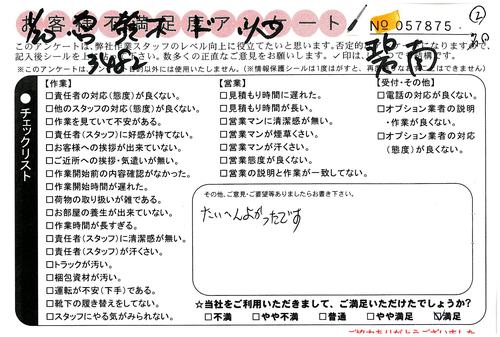 お客様不満足度アンケート
No 057875
②
このアンケートは、弊社作業スタッフのレベル向上に役立てたいと思います。否定的
記入後シールを上
数多くの正直なご意見をお願いします。✓印は、
構です。
【作業】
□責任者の対応(態度)が良くない。
□他のスタッフの対応(態度)が良くない。
□作業を見ていて不安がある。
□責任者(スタッフ)に好感が持てない。
□お客様への挨拶が出来ていない。
□ご近所への挨拶・気遣いが無い。
□作業開始前の内容確認がなかった。
□作業開始時間が遅れた。
□荷物の取り扱いが雑である。
□お部屋の養生が出来ていない。
□作業時間が長すぎる。
□責任者(スタッフ)に清潔感が無い。
□責任者(スタッフ)が汗くさい。
□トラックが汚い。
□梱包資材が汚い。
□運転が不安(下手)である。
□靴下の履き替えをしてない。
□スタッフにやる気がみられない。
【営業】
□見積もり時間に遅れた。
□見積もり時間が長い。
□営業マンに清潔感が無い。
□営業マンが煙草くさい。
□営業マンが汗くさい。
□営業態度が良くない。
□営業の説明と作業が一致してない。
【受付・その他】
□電話の対応が良くない。
□オプション業者の説明
・作業が良くない。
□オプション業者の対応
(態度)が良くない。
● チェックリスト
その他、ご意見・ご要望等ありましたらお書き下さい。
たいへんよかったです
☆当社をご利用いただきまして、ご満足いただけたでしょうか?
□不満 □やや不満 □普通 □やや満足 ☑満足
ご協力ありがとうございました